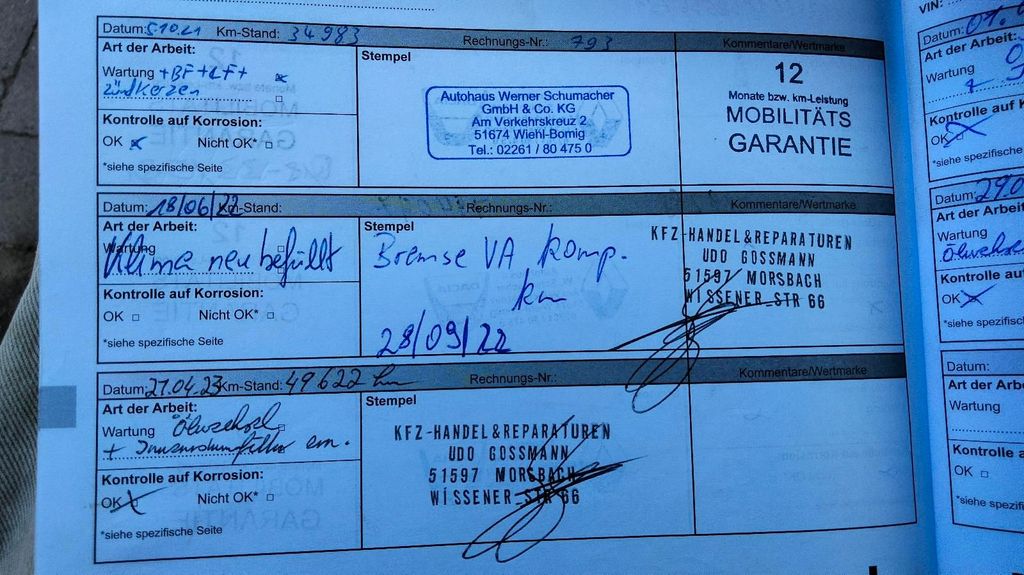 Datum: 5.10.21 Km-Stand: 34983 Rechnungs-Nr.: 793 Kommentare/Wertmarke
Art der Arbeit:
Wartung +BF+LF+
Zündkerzen
Kontrolle auf Korrosion:
OK Nicht OK*
*siehe spezifische Seite
Stempel
Autohaus Werner Schumacher
GmbH & Co. KG
Am Verkehrskreuz 2
51674 Wiehl-Bomig
Tel.: 02261 / 80 475 0
12
Monate bzw. km-Leistung
MOBILITÄTS
GARANTIE
Datum: 18/06/22 Km-Stand: Rechnungs-Nr.: Kommentare/Wertmarke
Art der Arbeit:
Wartung
Klima neu befüllt
Kontrolle auf Korrosion:
OK Nicht OK*
*siehe spezifische Seite
Stempel
Bremse VA komp.
km
28/09/22
KFZ-HANDEL&REPARATUREN
UDO GOSSMANN
51597 MORSBACH
WISSENER STR 66
Datum: 27.04.23 Km-Stand: 49622 km Rechnungs-Nr.: Kommentare/Wertmarke
Art der Arbeit:
Wartung Ölwechsel
+ Innenraumfilter ern.
Kontrolle auf Korrosion:
OK Nicht OK*
*siehe spezifische Seite
Stempel
KFZ-HANDEL&REPARATUREN
UDO GOSSMANN
51597 MORSBACH
WISSENER STR 66
VIN:
Datum:
Art der Arbeit:
Wartung
Kontrolle auf
OK
*siehe spezifische
Datum: 29.0
Art der Arbeit
Wartung
Ölwechsel
Kontrolle auf
OK
*siehe spezifische
Datum:
Art der Arbe
Wartung
Kontrolle au
OK
*siehe spezifis